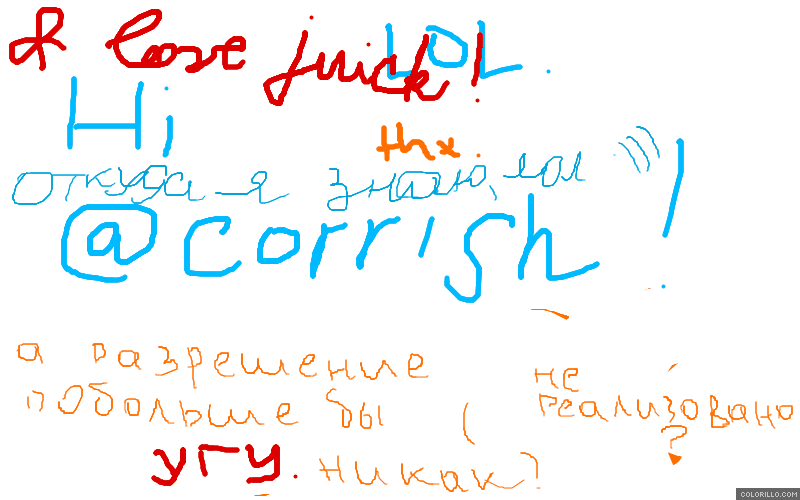 I love juick!
LOL.
Hi
thx.
откуда-я знаю, лол )))
@corrish!
а разрешение
побольше бы (
не
реализовано
?
угу.
никак?
COLORILLO.COM